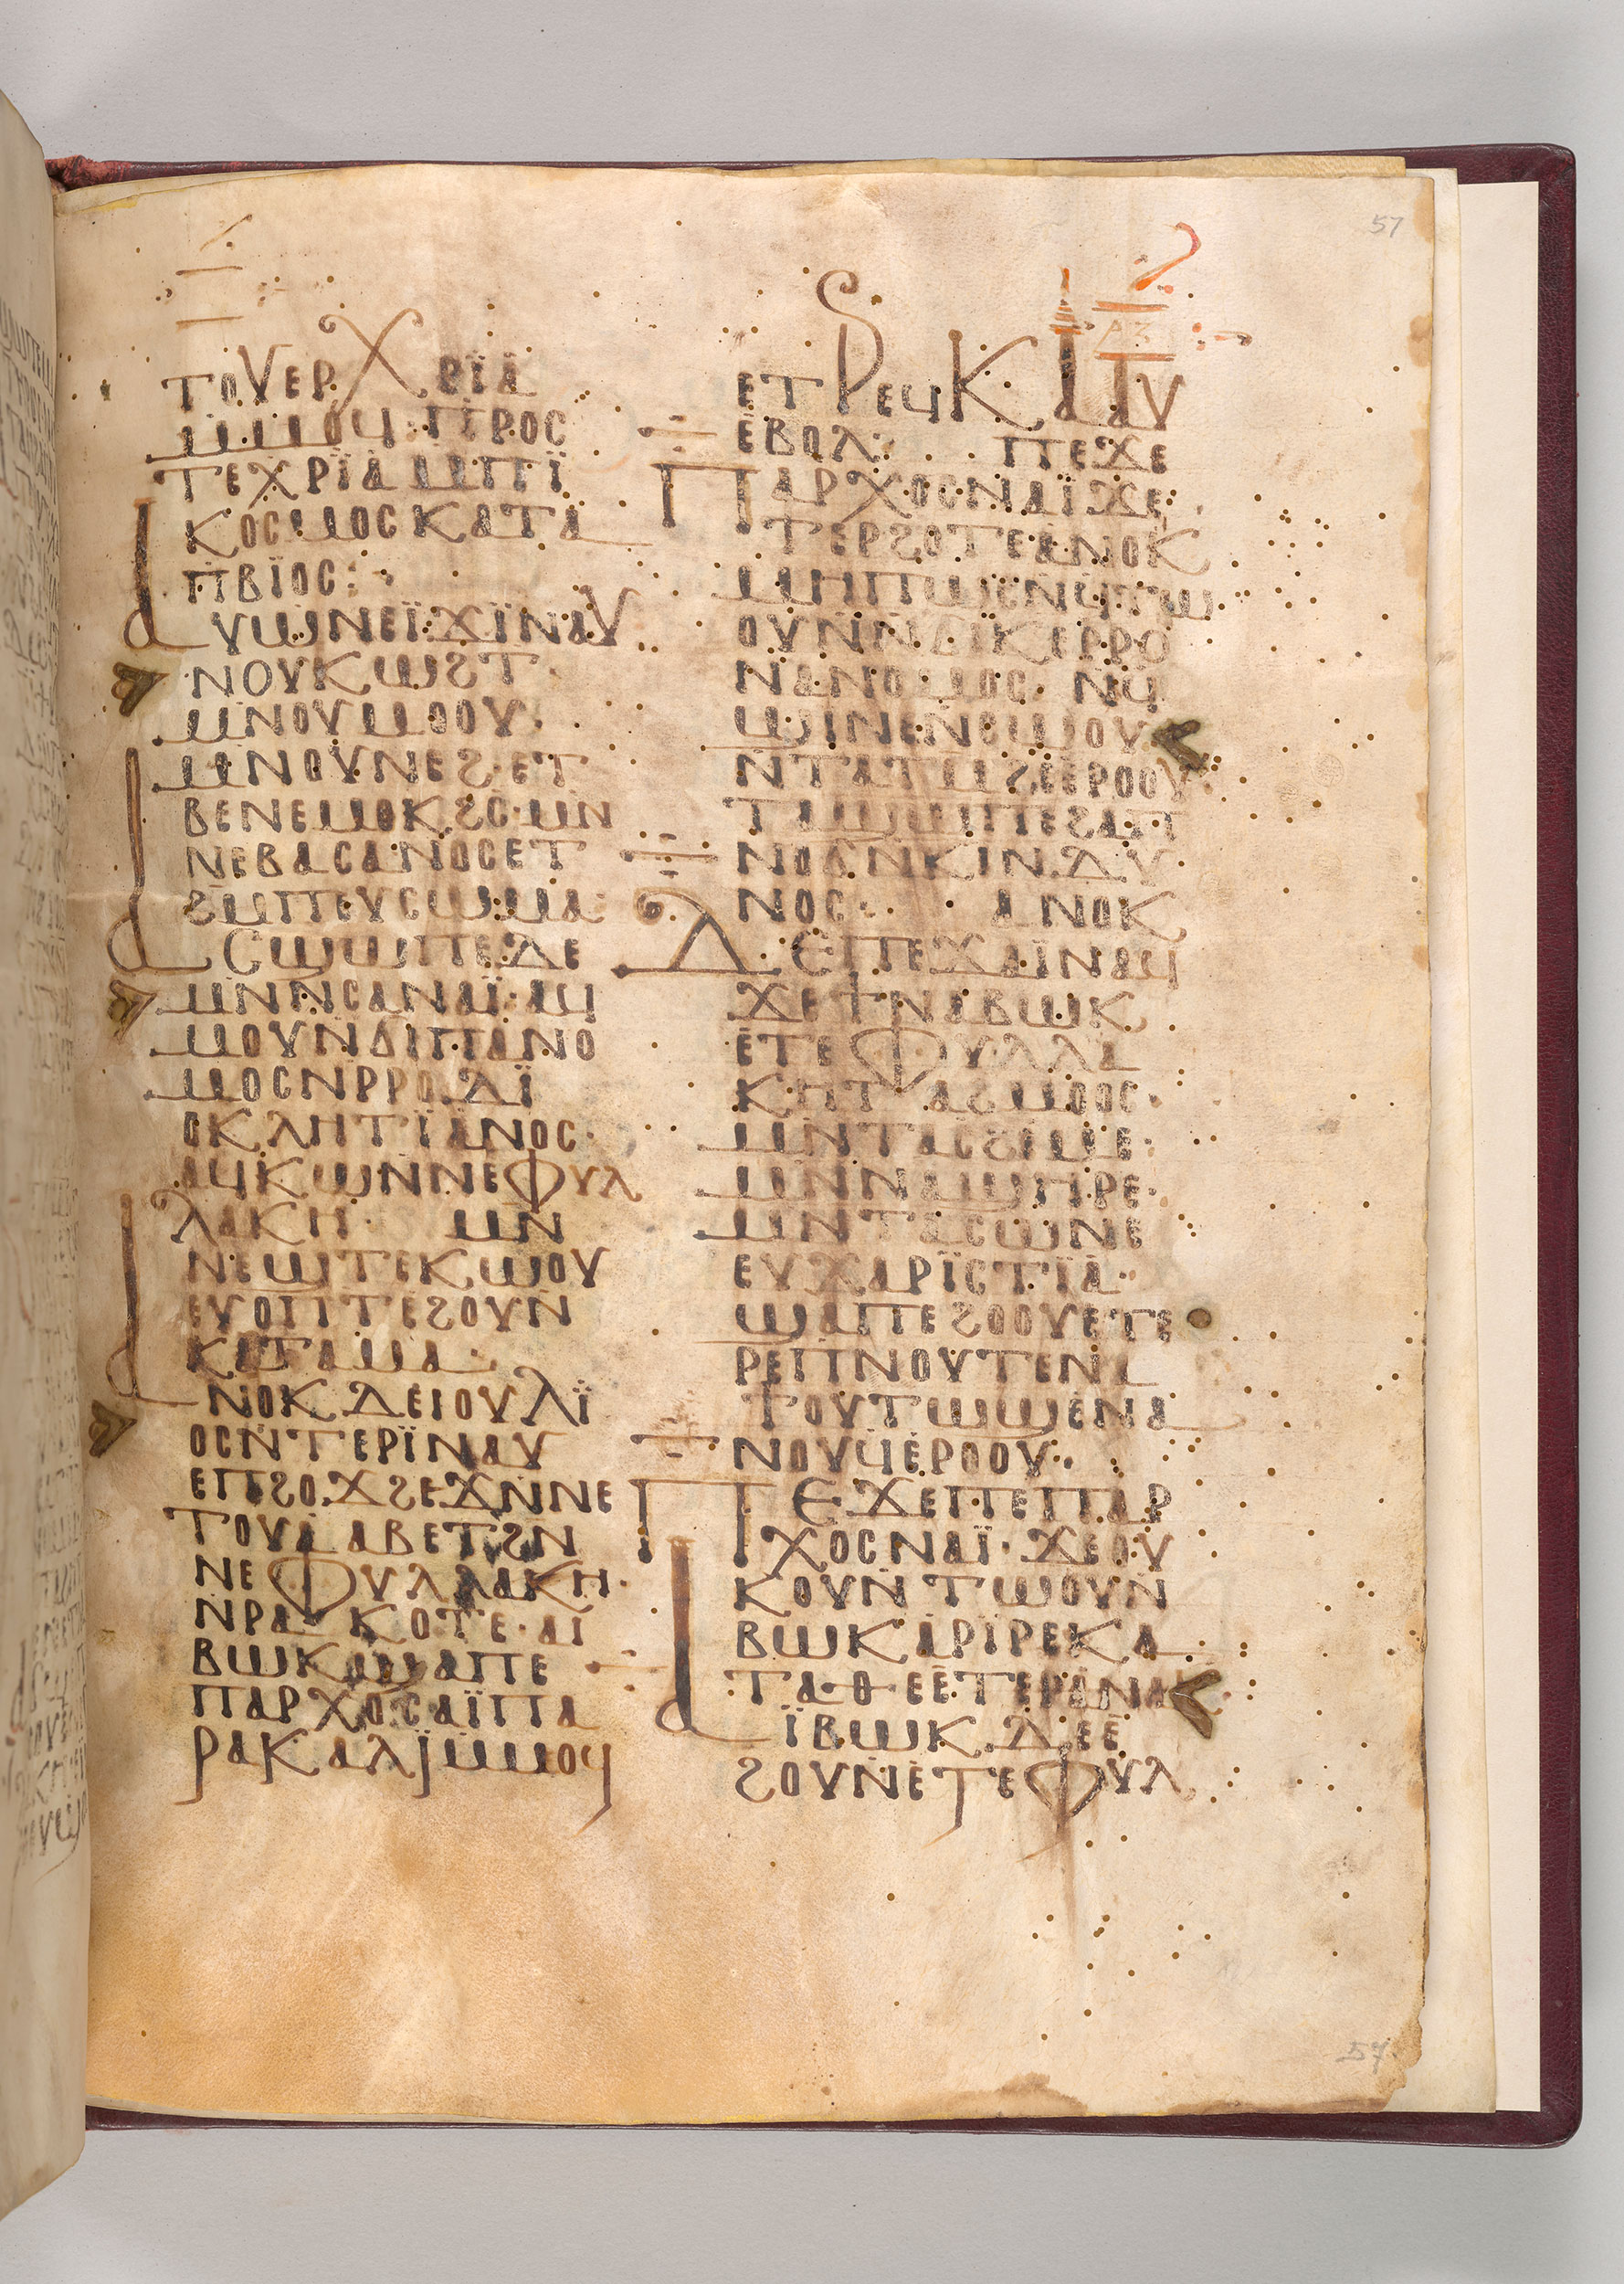 57
ⲣⲍ
ⲧⲟⲩⲉⲣⲭⲣⲓ̈ⲁ
ⲙ̄ⲙⲟϥ· ⲡⲣⲟⲥ
ⲧⲉⲭⲣⲓ̈ⲁ ⲙⲡⲓ̈
ⲕⲟⲥⲙⲟⲥ ⲕⲁⲧⲁ
ⲡⲃⲓ̈ⲟⲥ:
ⲁⲩⲱⲛⲉⲓ̈ϫⲓ̈ⲛⲁⲩ
ⲛⲟⲩⲕⲱϩⲧ·
ⲙⲛⲟⲩⲙⲟⲟⲩ·
ⲙⲛⲟⲩⲛⲉϩ·ⲉⲧ
ⲃⲉⲛⲉⲙⲟⲕϩⲥ·ⲙⲛ
ⲛⲉⲃⲁⲥⲁⲛⲟⲥⲉⲧ
ϩⲓⲙⲡⲉⲩⲥⲱⲙⲁ·
ⲁⲥϣⲱⲡⲉⲇⲉ
ⲙⲛⲛⲥⲁⲛⲁⲓ̈·ⲁϥ
ⲙⲟⲩⲛϭⲓⲡⲁⲛⲟ
ⲙⲟⲥⲛⲣⲣⲟ ⲇⲓ̈
ⲟⲕⲗⲏⲧⲓ̈ⲁⲛⲟⲥ·
ⲁϥⲕⲱⲛⲛⲉⲫⲩⲗ
ⲗⲁⲕⲏ· ⲙⲛ
ⲛⲉϣⲧⲉⲕⲱⲟⲩ
ⲉⲩⲟⲡⲧⲉϩⲟⲩⲛ
ⲕⲁⲧⲁⲙⲁ·
ⲁⲛⲟⲕ ⲇⲉⲓⲟⲩⲗⲓ̈
ⲟⲥⲛⲧⲉⲣⲓ̈ⲛⲁⲩ
ⲉⲡϩⲟϫϩⲉϫⲛⲛⲉ
ⲧⲟⲩⲁⲁⲃⲉⲧϩⲛ
ⲛⲉⲫⲩⲗⲗⲁⲕⲏ·
ⲛⲣⲁⲕⲟⲧⲉ·ⲁⲓ
ⲃⲱⲕϣⲁⲡⲉ
ⲡⲁⲣⲭⲟⲥⲁⲓ̈ⲡⲁ
ⲣⲁⲕⲁⲗⲓ̈ⲙⲙⲟϥ
ⲉⲧⲣⲉϥⲕⲁⲁⲩ
ⲉⲃⲟⲗ: ⲡⲉϫⲉ
ⲡⲁⲣⲭⲟⲥⲛⲁⲓ̈ϫⲉ
ϯⲉⲣϩⲟⲧⲉⲁⲛⲟⲕ
ⲙⲏⲡⲱⲥⲛϥⲧⲱ
ⲟⲩⲛⲛϭⲓ̈ⲕⲉⲣⲣⲟ
ⲛⲁⲛⲟⲙⲟⲥ· ⲛϥ
ϣⲓⲛⲉⲛⲥⲱⲟⲩ
ⲛⲧⲁⲧⲙϩⲉⲉⲣⲟⲟⲩ
ⲧⲁϣⲱⲡⲉϩⲁⲡ
ⲛⲟϭⲛⲕⲓⲛⲇⲩ
ⲛⲟⲥ· ⲁⲛⲟⲕ
ⲇⲉⲡⲉϫⲁⲓ̈ⲛⲁϥ
ϫⲉϯⲛⲁⲃⲱⲕ
ⲉⲧⲉⲫⲩⲗⲗⲁ
ⲕⲏⲧⲁϩⲙⲟⲟⲥ·
ⲙⲛⲧⲁⲥϩⲓⲙⲉ·
ⲙⲛⲛⲁϣⲏⲣⲉ·
ⲙⲛⲧⲁⲥⲱⲛⲉ
ⲉⲩⲭⲁⲣⲓ̈ⲥⲧⲓ̈ⲁ·
ϣⲁⲡⲉϩⲟⲟⲩⲉⲧⲉ
ⲣⲉⲡⲛⲟⲩⲧⲉⲛⲁ
ϯⲟⲩⲧⲱϣⲉⲛⲁ
ⲛⲟⲩϥⲉⲣⲟⲟⲩ·
ⲡⲉϫⲉⲡⲉⲡⲁⲣ
ⲭⲟⲥⲛⲁⲓ̈· ϫⲉⲟⲩ
ⲕⲟⲩⲛⲧⲱⲟⲩⲛ
ⲃⲱⲕⲁⲣⲓ̈ⲣⲉⲕⲁ
ⲧⲁⲑⲉⲉⲧⲉⲣⲁⲛⲁⲕ
ⲁⲓ̈ⲃⲱⲕ ⲇⲉⲉ
ϩⲟⲩⲛⲉⲧⲉⲫⲩⲗ
57